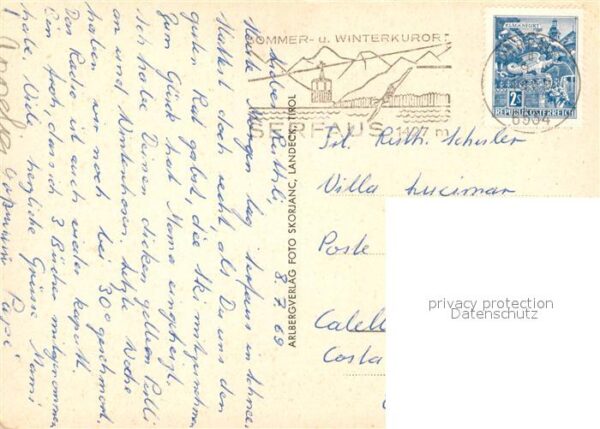 8. 7. 69
Liebes Ruthli,
Heute Morgen lag Serfaus in Schnee.
Hattest doch recht, als Du uns den
guten Rat gabst, die Ski mitzunehmen.
Zum Glück hat Mama eingeheizt.
Ich habe Deinen dicken gelben Pulli
an und Winterhosen. Letzte Woche
haben wir noch bei 30° geschmort.
Das Radio ist auch wieder kaputt.
Den doch, dass ich 3 Bücher mitgenommen
habe. Viele herzliche Grüsse Mami
Papi
ARLBERGVERLAG FOTO SKORJANC, LANDECK, TIROL
SOMMER- u. WINTERKURORT
SERFAUS 1427 m
KLAGENFURT
2 S
REPUBLIK ÖSTERREICH
6534
Frl. Ruth Schuler
Villa Lucimar
Poste
Calell
Costa
privacy protection
Datenschutz